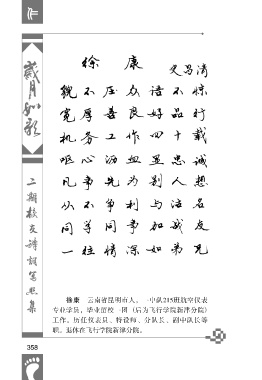 岁月如歌
二期校友诗词写照集
徐 康
文昌清
貌不压众语不惊
宽厚善良好品行
机务工作四十载
呕心沥血显忠诚
凡事先为别人想
从不争利与活名
同学同事加战友
一往情深如弟兄
徐康 云南省昆明市人。一中队215班航空仪表
专业学员，毕业留校一团（后为飞行学院新津分院）
工作。历任仪表员、特设师、分队长、副中队长等
职。退休在飞行学院新津分院。
358